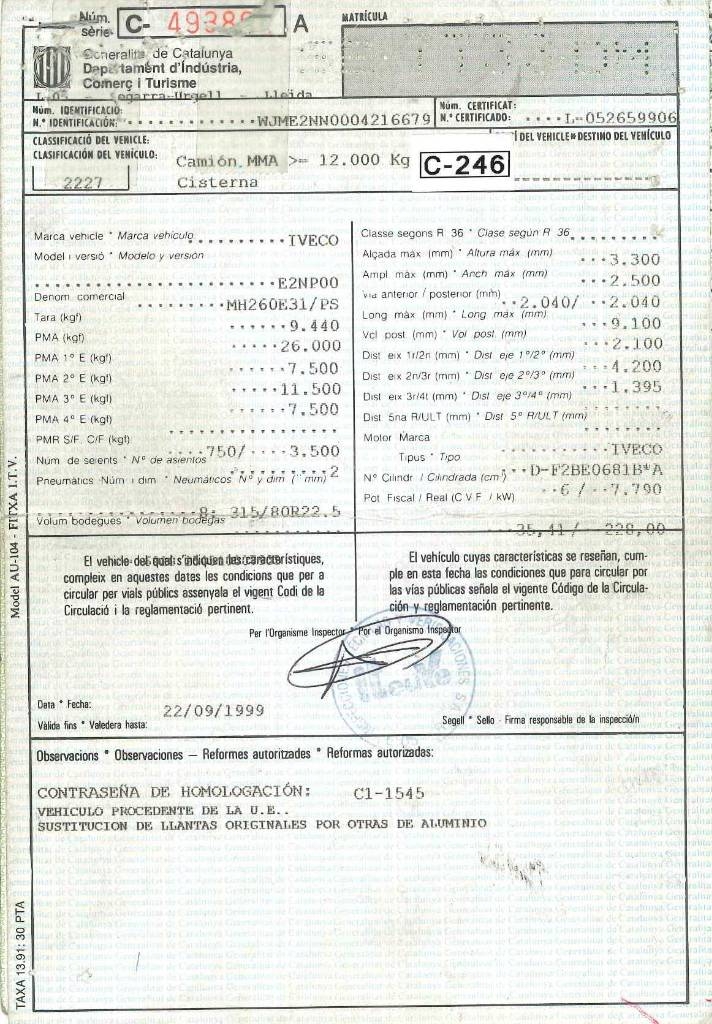 Núm. sèrie. C- A
MATRÍCULA
Generalitat de Catalunya
Departament d'Indústria,
Comerç i Turisme
L-05 Segarra-Urgell Lleida
Núm. IDENTIFICACIÓ:
N.º IDENTIFICACIÓN: WJME2NN0004216679
Núm. CERTIFICAT:
N.º CERTIFICADO: L-052659906
CLASSIFICACIÓ DEL VEHICLE:
CLASIFICACIÓN DEL VEHÍCULO:
Camión MMA >= 12.000 Kg
2227 Cisterna
C-246
DEL VEHICLE DESTINO DEL VEHÍCULO
Marca vehicle * Marca vehículo IVECO
Model i versió * Modelo y versión
E2NP00
Denom comercial MH260E31/PS
Tara (kgf) 9.440
PMA (kgf) 26.000
PMA 1º E (kgf) 7.500
PMA 2º E (kgf) 11.500
PMA 3º E (kgf) 7.500
PMA 4º E (kgf)
PMR S/F. C/F (kgf) 750/ 3.500
Núm de seients * Nº de asientos 2
Pneumàtics Núm i dim * Neumáticos Nº y dim (mm)
8: 315/80R22.5
Volum bodegues * Volumen bodegas
Classe segons R 36 * Clase según R 36
Alçada màx (mm) * Altura máx (mm) 3.300
Ampl màx (mm) * Anch máx (mm) 2.500
Via anterior / posterior (mm) 2.040/ 2.040
Long màx (mm) * Long máx (mm) 9.100
Vol post (mm) * Vol post (mm) 2.100
Dist eix 1r/2n (mm) * Dist eje 1º/2º (mm) 4.200
Dist eix 2n/3r (mm) * Dist eje 2º/3º (mm) 1.395
Dist eix 3r/4t (mm) * Dist eje 3º/4º (mm)
Dist 5na R/ULT (mm) * Dist 5º R/ULT (mm)
Motor Marca IVECO
Tipus * Tipo D-F2BE0681B*A
Nº Cilindr / Cilindrada (cm³) 6 / 7.790
Pot Fiscal / Real (C V F / kW)
35,41/ 228,00
El vehicle del qual s'indiquen les característiques,
compleix en aquestes dates les condicions que per a
circular per vials públics assenyala el vigent Codi de la
Circulació i la reglamentació pertinent.
El vehículo cuyas características se reseñan, cum-
ple en esta fecha las condiciones que para circular por
las vías públicas señala el vigente Código de la Circula-
ción y reglamentación pertinente.
Per l'Organisme Inspector * Por el Organismo Inspector
Data * Fecha: 22/09/1999
Vàlida fins * Valedera hasta:
Segell * Sello - Firma responsable de la inspecció/n
Observacions * Observaciones — Reformes autoritzades * Reformas autorizadas:
CONTRASEÑA DE HOMOLOGACIÓN: C1-1545
VEHICULO PROCEDENTE DE LA U.E..
SUSTITUCION DE LLANTAS ORIGINALES POR OTRAS DE ALUMINIO
Model AU-104 - FITXA I.T.V.
TAXA 13.91: 30 PTA